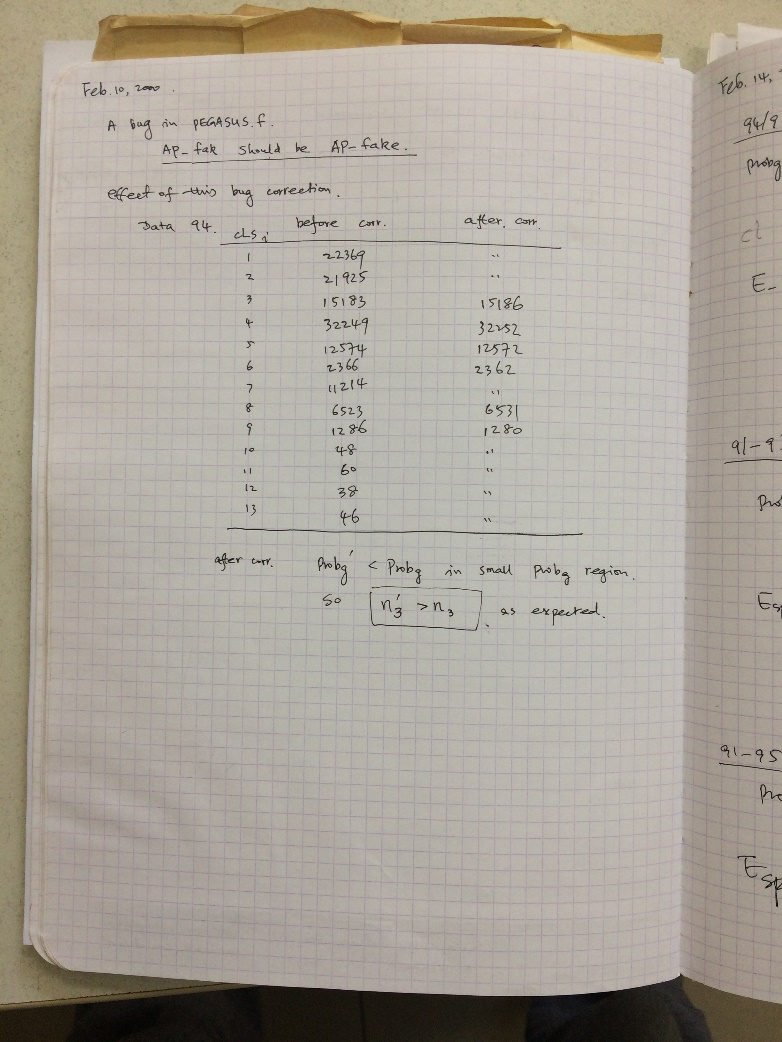 Feb. 10, 2000.
A bug in PEGASUS.f.
AP-fak should be AP-fake.
effect of this bug correction.
Data 94. cls, before corr. after. corr.
1 22369 "
2 21925 "
3 15183 15186
4 32249 32252
5 12574 12572
6 2366 2362
7 11214 "
8 6523 6531
9 1286 1280
10 48 "
11 60 "
12 38 "
13 46 "
after corr. Probg' < Probg in small probg region.
so n₃' > n₃ . as expected.
Feb. 14,
94/9
probg
cl
E-
91-9
Pro
Esp
91-95
Pro
Esp